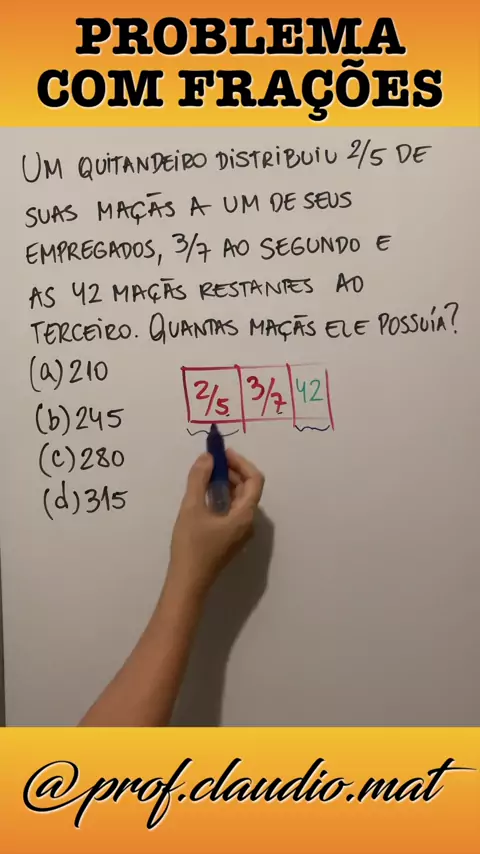 PROBLEMA
COM FRAÇÕES
UM QUITANDEIRO DISTRIBUIU 2/5 DE
SUAS MAÇÃS A UM DE SEUS
EMPREGADOS, 3/7 AO SEGUNDO E
AS 42 MAÇÃS RESTANTES AO
TERCEIRO. QUANTAS MAÇÃS ELE POSSUÍA?
(a) 210
(b) 245
(c) 280
(d) 315
2/5 3/7 42
@prof.claudio.mat